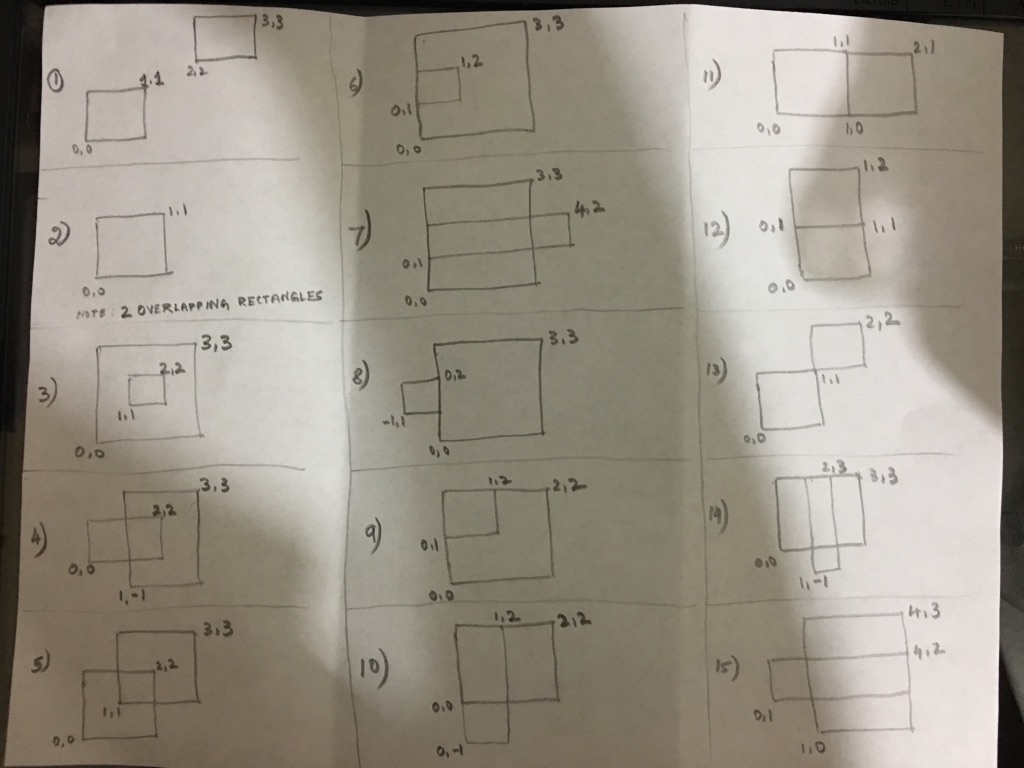 1) 3,3
2,2
1,1
0,0
2) 1,1
0,0
NOTE: 2 OVERLAPPING RECTANGLES
3) 3,3
2,2
1,1
0,0
4) 3,3
2,2
0,0
1,-1
5) 3,3
2,2
1,1
0,0
6) 3,3
1,2
0,1
0,0
7) 3,3
4,2
0,1
0,0
8) 3,3
0,2
-1,1
0,0
9) 1,2 2,2
0,1
0,0
10) 1,2 2,2
0,0
0,-1
11) 1,1 2,1
0,0 1,0
12) 1,2
0,1 1,1
0,0
13) 2,2
1,1
0,0
14) 2,3 3,3
0,0
1,-1
15) 4,3
4,2
0,1
1,0